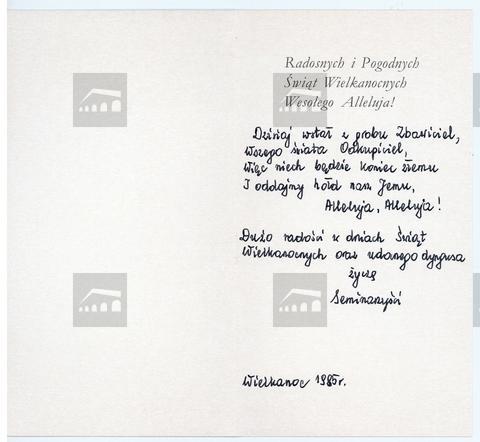 Radosnych i Pogodnych
Świąt Wielkanocnych
Wesołego Alleluja!
Dzisiaj wstał z grobu Zbawiciel,
Wszego świata Odkupiciel,
Więc niech będzie koniec złemu
I oddajmy hołd nasz Jemu,
Alleluja, Alleluja!
Dużo radości w dniach Świąt
Wielkanocnych oraz udanego dyngusa
życzą
Seminarzyści
Wielkanoc 1985r.